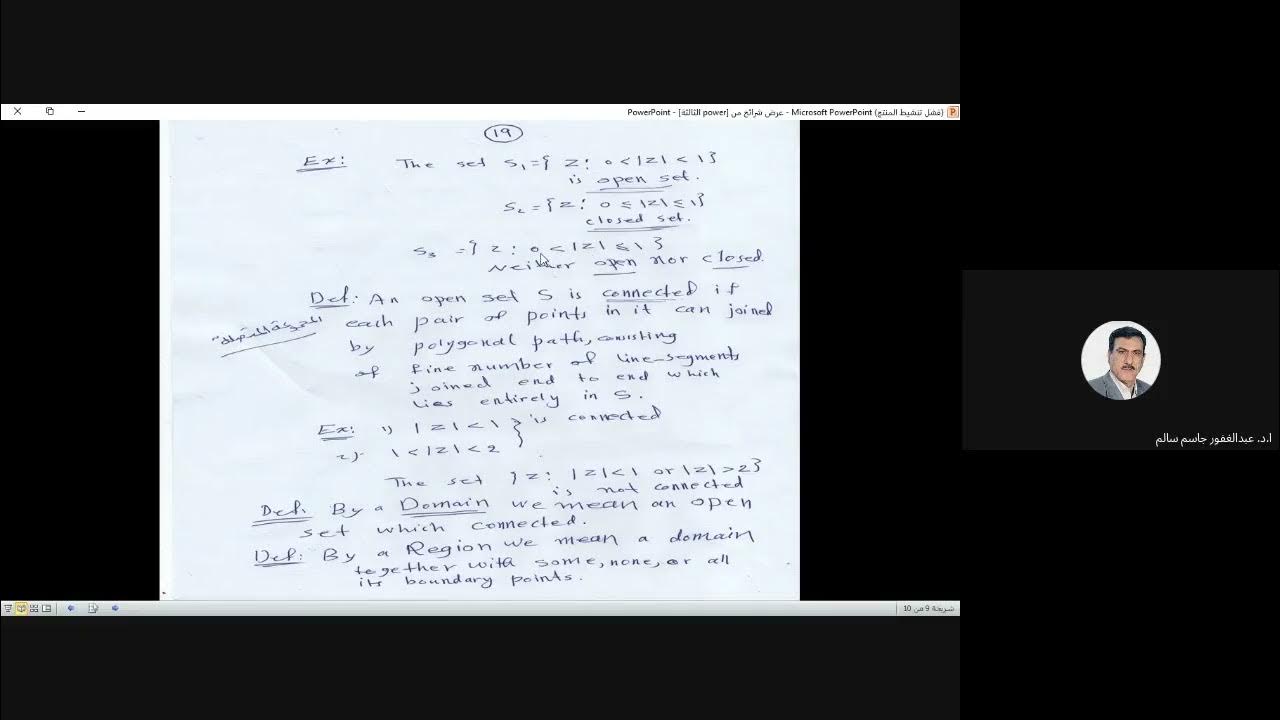 PowerPoint - [الثالثة power] عرض شرائح من - Microsoft PowerPoint (فشل تنشيط المنتج)
19
Ex: The set S₁={ z: 0<|z|<1}
is open set.
S₂={z: 0≤|z|≤1}
closed set.
S₃ ={ z: 0<|z|≤1}
Neither open nor closed.
Def: An open set S is connected if
each pair of points in it can joined
المجموعة المتصلة
by polygonal path, consisting
of fine number of line-segments
joined end to end which
lies entirely in S.
Ex: 1) |z|<1 } is connected
2). 1<|z|<2
The set {z: |z|<1 or |z|>2}
is not connected
Def. By a Domain we mean an open
set which connected.
Def: By a Region we mean a domain
together with some, none, or all
its boundary points.
شريحة 9 من 10
ا.د. عبدالغفور جاسم سالم